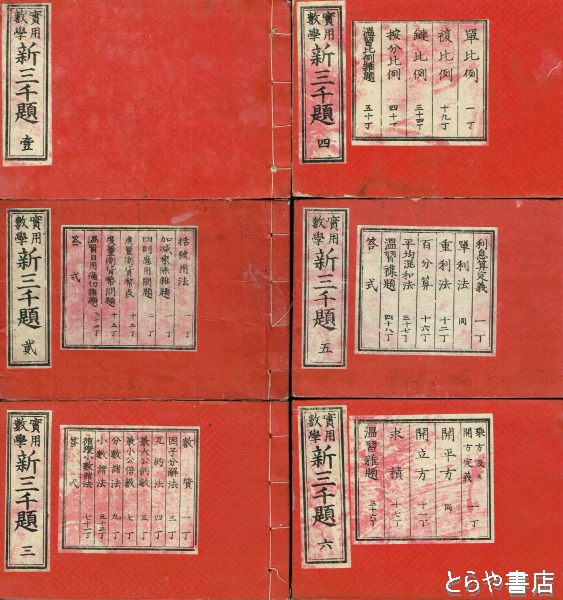 實用
數學
新三千題
壹
實用
數學
新三千題
貳
括號用法 一丁
加減乘除雜題 二丁
四則應用問題
度量衡貨幣表 十二丁
度量衡貨幣問題 十五丁
溫習日用適切雜題
答式
實用
數學
新三千題
三
數質 一丁
因子分解法 三丁
互約法 四丁
最大公約數 三丁
最小公倍數 七丁
分數諸法 九丁
小數諸法 五十三丁
循環小數諸法 七十一丁
答式
實用
數學
新三千題
四
單比例 一丁
複比例 十九丁
鏈比例 三十四丁
按分比例 四十丁
溫習比例雜題 五十丁
實用
數學
新三千題
五
利息算定義 一丁
單利法 同
重利法 十二丁
百分算 十六丁
平均混和法 三十七丁
溫習雜題 四十八丁
答式
實用
數學
新三千題
六
乘方及
開方定義 一丁
開平方 同
開立方 十一丁
求積 十七丁
溫習雜題 三十六丁
とらや書店